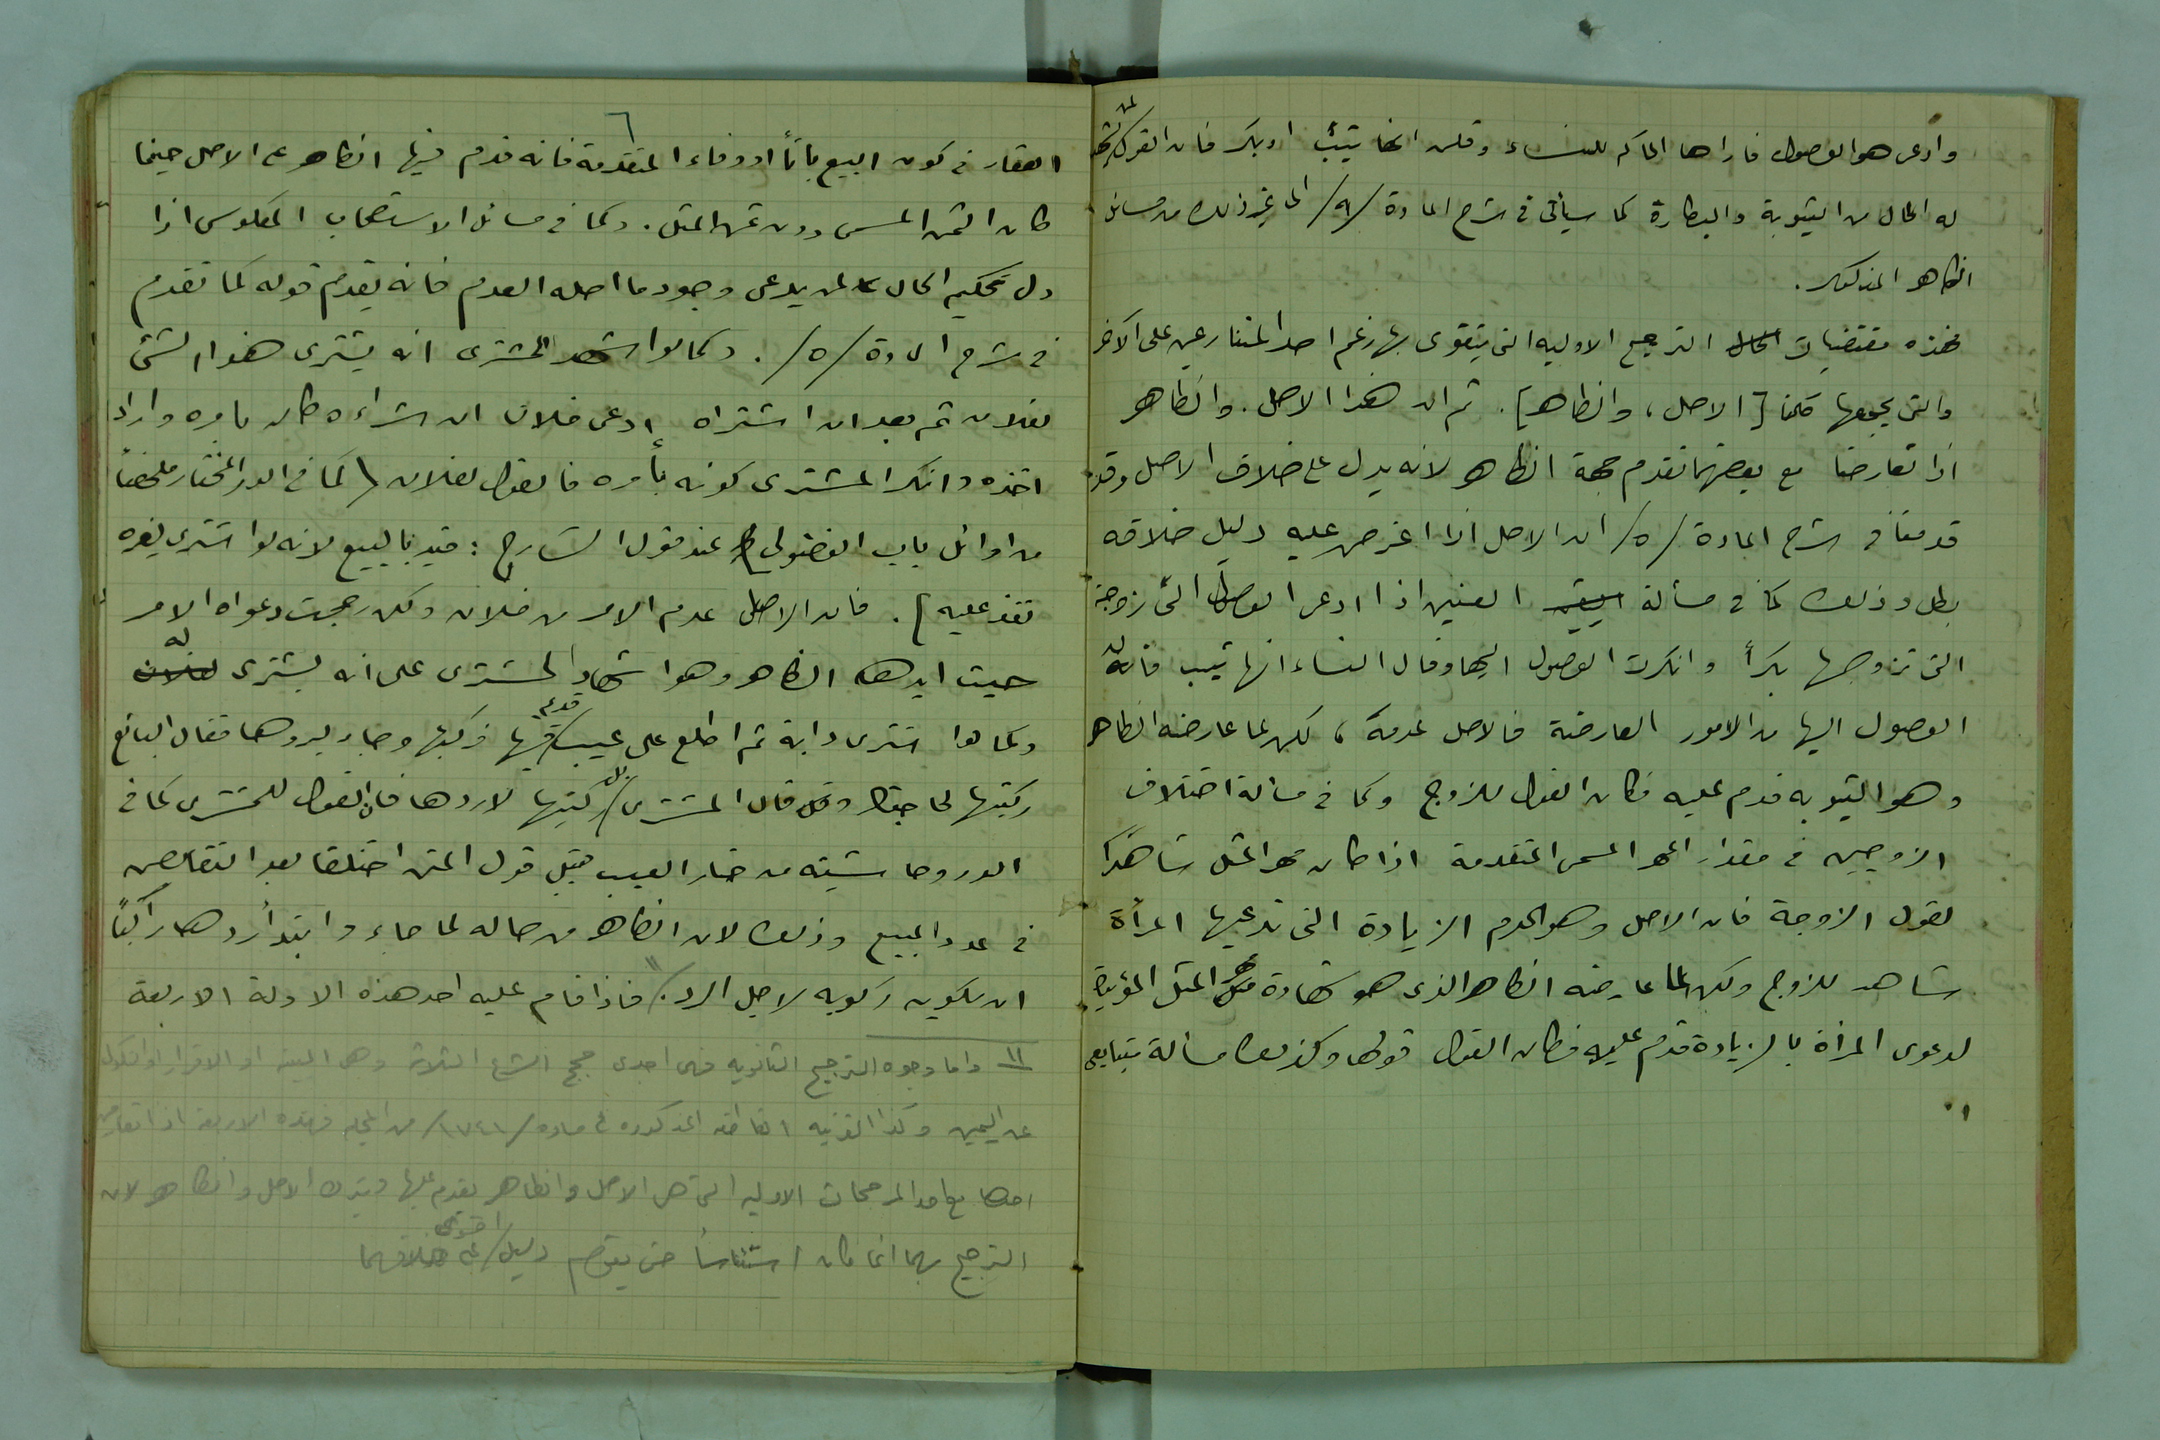 وادعى هو الوصول فاراها الحاكم للنساء وقلن انها ثيب او بكر فان القول لمن يشهد
له الحال من الثيوبة والبكارة كما سيأتي في شرح المادة /٩/ الى غير ذلك من مسائل
الظاهر المذكور.
فهذه مقتضيات الترجيح الاولية التي يتقوى بها زعم احد المتنازعين على الآخر
والتي يجمعها كلمتا [الاصل، والظاهر]. ثم ان هذا الاصل. والظاهر
اذا تعارضا مع بعضهما تقدم جهة الظاهر لانه يدل على خلاف الاصل وقد
قدمنا في شرح المادة /٥/ ان الاصل اذا اعترض عليه دليل خلافه
بطل وذلك كما في مسألة العنين اذا ادعى الوصول الى زوجته
التي تزوجها بكراً وانكرت الوصول اليها وقال النساء انها ثيب فانه
الوصول اليها من الامور العارضة فالاصل عدمه، لكن لما عارضه الظاهر
وهو الثيوبه قدم عليه فكان القول للزوج وكما في مسألة اختلاف
الزوجين في مقدار المهر المسمى المتقدمة اذا كان مهر المثل شاهداً
لقول الزوجة فان الاصل وهو عدم الزيادة التي تدعيها المرأة
شاهد للزوج ولكن لما عارضه الظاهر الذي هو شهادة مهر المثل المؤيدة
لدعوى المرأة بالزيادة قدم عليه فكان القول قولها وكذلك مسألة متبايعي
٦
العقار في كون البيع باتاً او وفاء المتقدمة فانه قدم فيها الظاهر على الاصل حينما
كان الثمن المسمى دون ثمن المثل. وكما في مسائل الاستصحاب المعكوس اذا
دل تحكيم الحال لمن يدعي وجود ما اصله العدم فانه يقدم قوله كما تقدم
في شرح المادة /٥/. وكما لو اشهد المشتري انه يشتري هذا الشيء
لفلان ثم بعد ان اشتراه ادعى فلان ان شراءه كان بامره واراد
اخذه وانكر المشتري كونه بأمره فالقول لفلان [كما في الدر المختار ملخصاً
من اوائل باب الفضولي عند قول الشارح: قيد بالبيع لانه لو اشترى لغيره
نفذ عليه]. فان الاصل عدم الامر من فلان ولكن رجحت دعواه الامر
حيث ايدها الظاهر وهو اشهاد المشتري على انه يشتري له
وكما لو اشترى دابة ثم اطلع على عيب قديم فيها فركبها وجاء ليردها فقال البائع
ركبتها لحاجتك وقال المشتري بل ركبتها لاردها فان القول للمشتري كما في
الدر وحاشيته من خيار العيب قبيل قول المتن اختلفا بعد التقابض
في عدد المبيع وذلك لان الظاهر من حاله لما جاء وابتدأ ردها راكباً
ان يكون ركوبه لاجل الرد. فاذا قام عليه احد هذه الادلة الاربعة
واما وجوه الترجيح الثانويه فهي احدى حجج الشرع الثلاث وهي البينة او الاقرار او النكول
عن اليمين وكذا القرينه القاطعه المذكوره في مادة /١٧٤١/ من المجله فهذه الاربعة اذا تعارض
احدها مع احد المرجحات الاوليه التي هي الاصل والظاهر يقدم عليها ويترك الاصل والظاهر لان
الترجيح بهما انما كان استئناساً حتى يقوم دليل اقوى على خلافهما